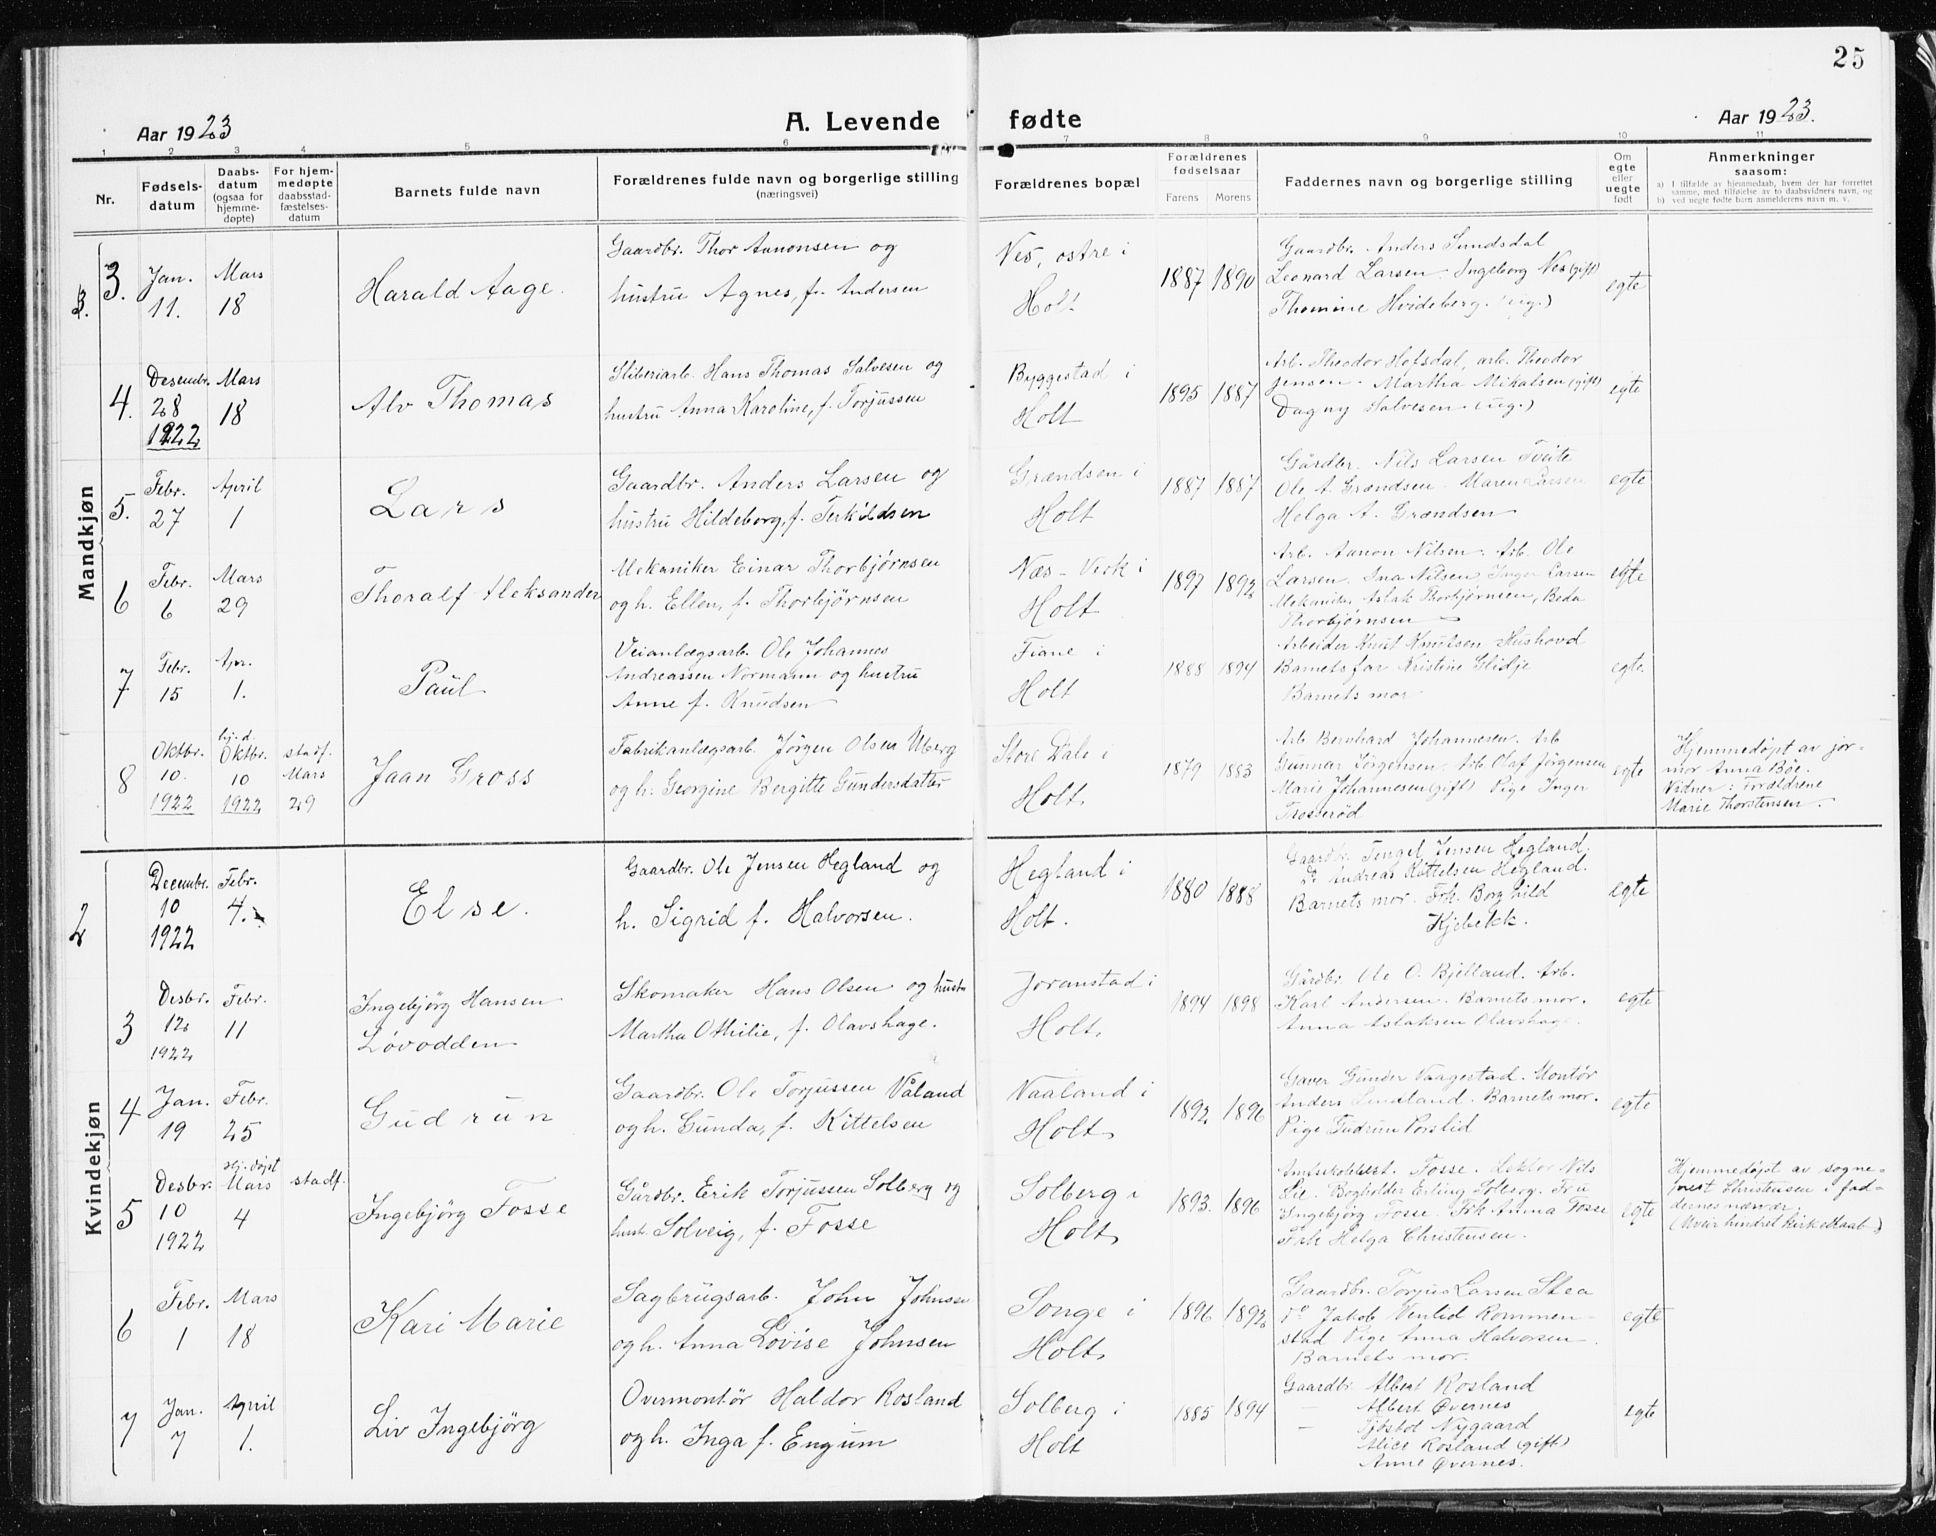 25
Aar 1923
A. Levende fødte
Aar 1923.
1 2 3 4 5 6 7 8 9 10 11
Nr.
Fødsels-
datum
Daabs-
datum
(ogsaa for
hjemme-
døpte)
For hjem-
medøpte
daabsstad-
fæstelses-
datum
Barnets fulde navn
Forældrenes fulde navn og borgerlige stilling
(næringsvei)
Forældrenes bopæl
Forældrenes
fødselsaar
Farens Morens
Faddernes navn og borgerlige stilling
Om
egte
eller
uegte
født
Anmerkninger
saasom:
a) I tilfælde av hjemmedaab, hvem der har forrettet
samme, med tilføielse av to daabsvidners navn, og
b) ved uegte fødte barn anmelderens navn m. v.
Mandkjøn
3.
Jan.
11.
Mars
18
Harald Aage.
Gaardbr. Thor Aanonsen og
hustru Agnes, f. Andersen
Nes, østre i
Holt
1887 1890
Gaardbr. Anders Sundsdal
Leonard Larsen. Ingeborg Nes (gift)
Thomine Hvideberg. (ug.)
egte
4.
Desembr.
28
1922
Mars
18
Alv Thomas
Sliberiarb. Hans Thomas Salvesen og
hustru Anna Karoline, f. Torjussen
Byggestad i
Holt
1895 1887
Arb. Theodor Hofsdal, arb. Theodor
Jensen. Martha Mikalsen (gift)
Dagny Salvesen. (ug.)
egte
5.
Febr.
27
April
1
Lars
Gaardbr. Anders Larsen og
hustru Hildeborg, f. Terkildsen
Grændsen i
Holt
1887 1887
Gårdbr. Nils Larsen Tveite
Ole A. Grændsen. Maren Larsen
Helga A. Grændsen
egte
6
Febr.
6
Mars
29
Thoralf Aleksander
Mekaniker Einar Thorbjørnsen
og h. Ellen, f. Thorbjørnsen
Næs-Verk i
Holt
1897 1892
Arb. Aanon Nilsen. Arb. Ole
Larsen. Ina Nilsen, Inger Larsen
Mekanik. Aslak Thorbjørnsen, Beda
Thorbjørnsen
egte
7
Febr.
15
Apr.
1.
Paul
Veianlægsarb. Ole Johannes
Andreassen Normann og hustru
Anne f. Knudsen
Fiane i
Holt
1888 1894
Arbeider Knut Knutsen Hushovd
Barnets far Kristine Glidje
Barnets mor
egte.
8
Oktbr.
10.
1922
hj.d.
Oktbr.
10
1922
stadf.
Mars
29
Jaan Gross
Fabrikanlægsarb. Jørgen Olsen Uberg
og h. Georgine Bergitte Gundersdatter
Store Dale i
Holt
1879 1883
Arb Bernhard Johannesen. Arb
Gunnar Jørgensen. Arb Olaf Jørgensen
Marie Johannesen (gift) Pige Inger
Trosserød
egte
Hjemmedøpt av jor-
mor Anna Bøe.
Vidner: Forældrene
Marie Thorstensen
Kvindekjøn
2
Decembr.
10
1922
Febr.
4.
Else.
Gaardbr. Ole Jensen Hegland og
h. Sigrid f. Halvorsen.
Hegland i
Holt.
1880 1888
Gaardbr. Tengel Jensen Hegland.
do Andreas Kittelsen Hegland.
Barnets mor. Frk. Borghild
Kjebekk.
egte
3
Desbr.
12
1922
Febr.
11
Ingebjørg Hansen
Løvodden
Skomaker Hans Olsen og hust.
Martha Othilie, f. Olavshage.
Joranstad i
Holt
1894 1898
Gårdbr. Ole O. Bjelland. Arb.
Karl Andersen. Barnets mor.
Anna Aslaksen Olavshage.
egte
4
Jan.
19
Febr.
25
Gudrun
Gaardbr. Ole Torjussen Våland
og h. Gunda, f. Kittelsen
Vaaland i
Holt
1892 1896
Gaver Gunder Vaagestad. Montør
Anders Lindland. Barnets mor.
Pige Gudrun Porslid
egte
5
Desbr.
10
1922
Hj. døpt
Mars
4
stadf.
Ingebjørg Fosse
Gårdbr. Erik Torjussen Solberg og
hust. Solveig, f. Fosse
Solberg i
Holt
1893. 1896
Fosse. Lektor Nils
Lie. Bogholder Erling Solberg. Fru
Ingebjørg Fosse. Frk Anna Fosse
Frk Helga Christensen.
egte
Hjemmedøpt av sogne-
prest Christensen i fad-
dernes nærvær.
(Uveir hindret kirkedaab)
6
Febr.
1
Mars
18
Kari Marie
Sagbrugsarb. John Johnsen
og h. Anna Lovise Johnsen
Songe i
Holt
1896 1892
Gaardbr. Torjus Larsen Stea
do Jakob Venlid Rommen-
stad Pige Anna Halvorsen
Barnets mor.
egte
7
Jan.
7
April
1.
Liv Ingebjörg
Overmontör Haldor Rosland
og h. Inga f. Engum
Solberg i
Holt
1885 1894
Gaardbr. Albert Rosland
— Albert Øvernes
— Tjøstol Nygaard
Alice Rosland (gift)
Anne Øvernes.
egte